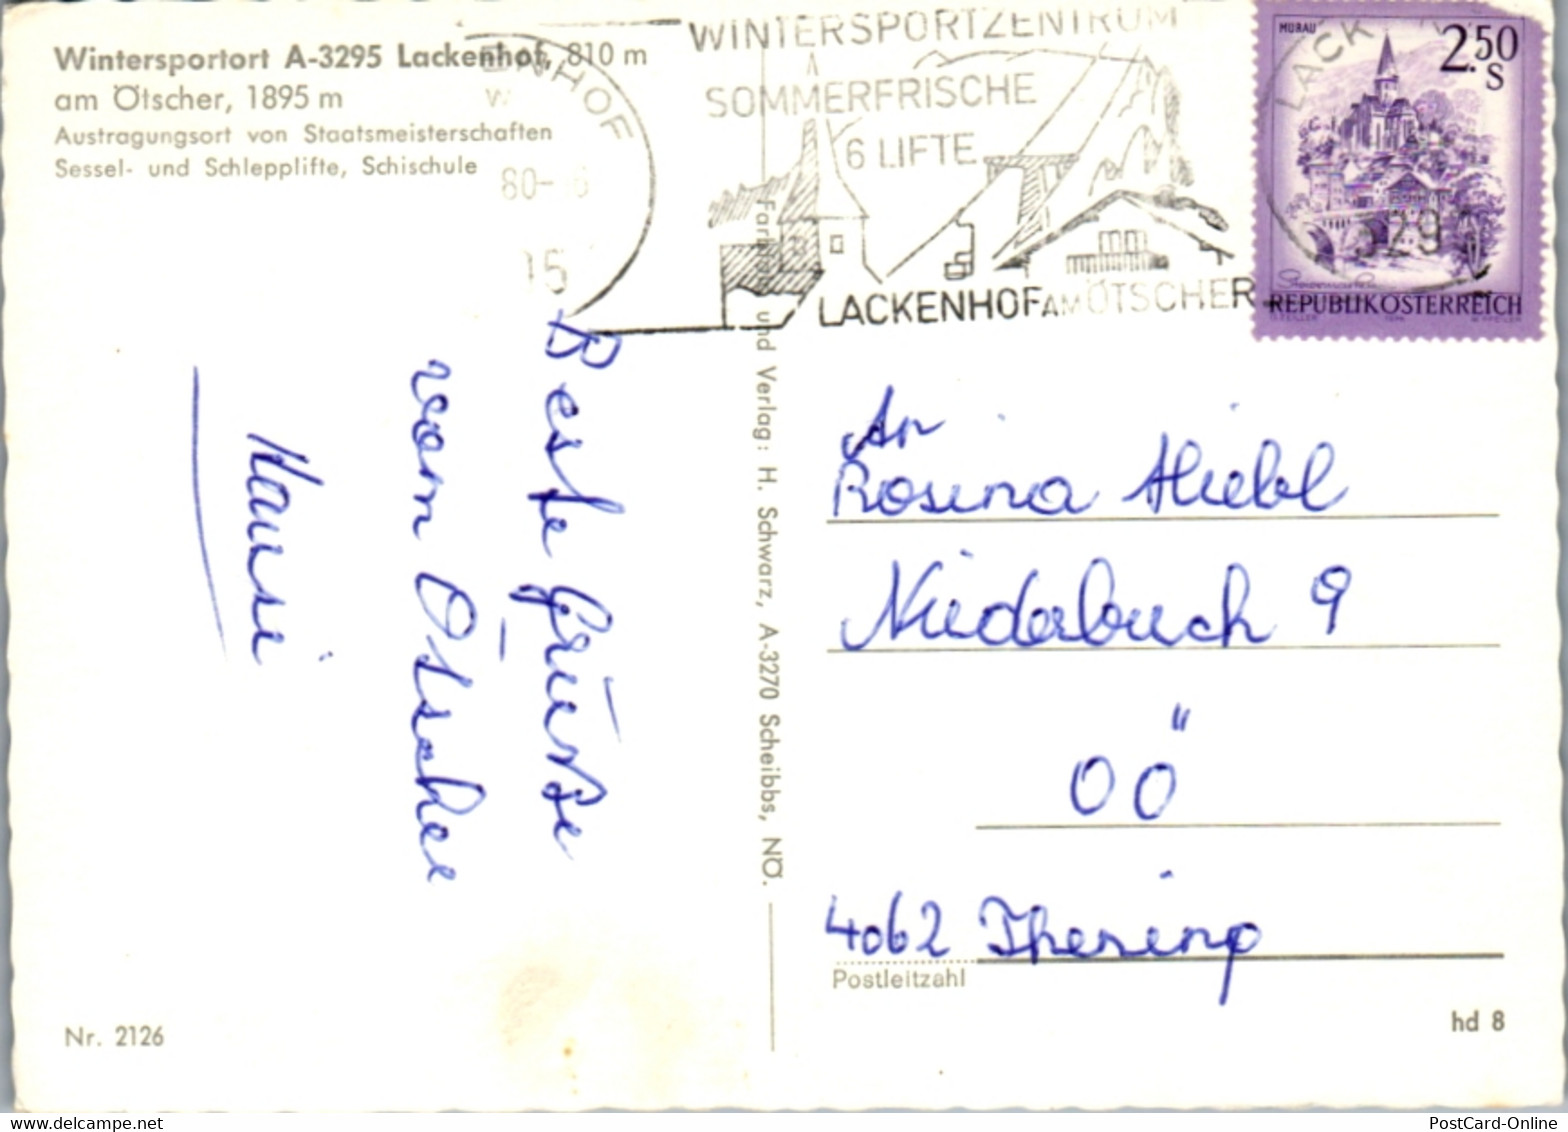 Wintersportort A-3295 Lackenhof, 810 m
am Ötscher, 1895 m
Austragungsort von Staatsmeisterschaften
Sessel- und Schlepplifte, Schischule
ENHOF
80-
15
WINTERSPORTZENTRUM
SOMMERFRISCHE
6 LIFTE
LACKENHOF AM ÖTSCHER
LACK
329
MURAU
2.50
S
REPUBLIK ÖSTERREICH
Beste Grüße
vom Ötscher
Hansi
und Verlag: H. Schwarz, A-3270 Scheibbs, NÖ.
An
Rosina Hiebl
Niederbuch 9
OÖ
4062 Thening
Postleitzahl
Nr. 2126
hd 8
PostCard-Online
www.delcampe.net